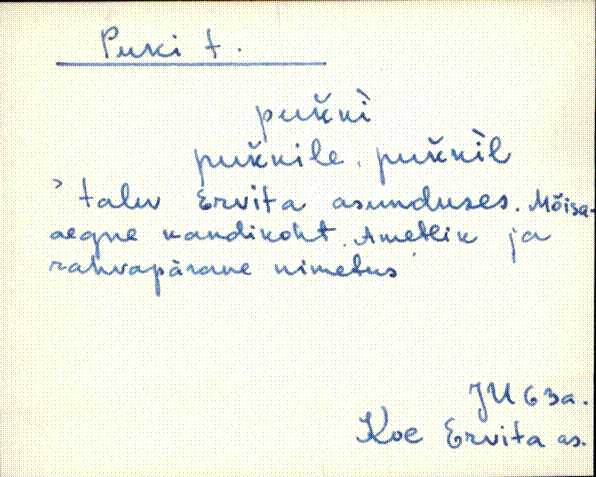 Puki t.
pukkì
pukkile, pukkìl
talu Ervita asunduses. Mõisa-
aegne kandikoht. Ametlik ja
rahvapärane nimetus
JU 63a.
Koe Ervita as.